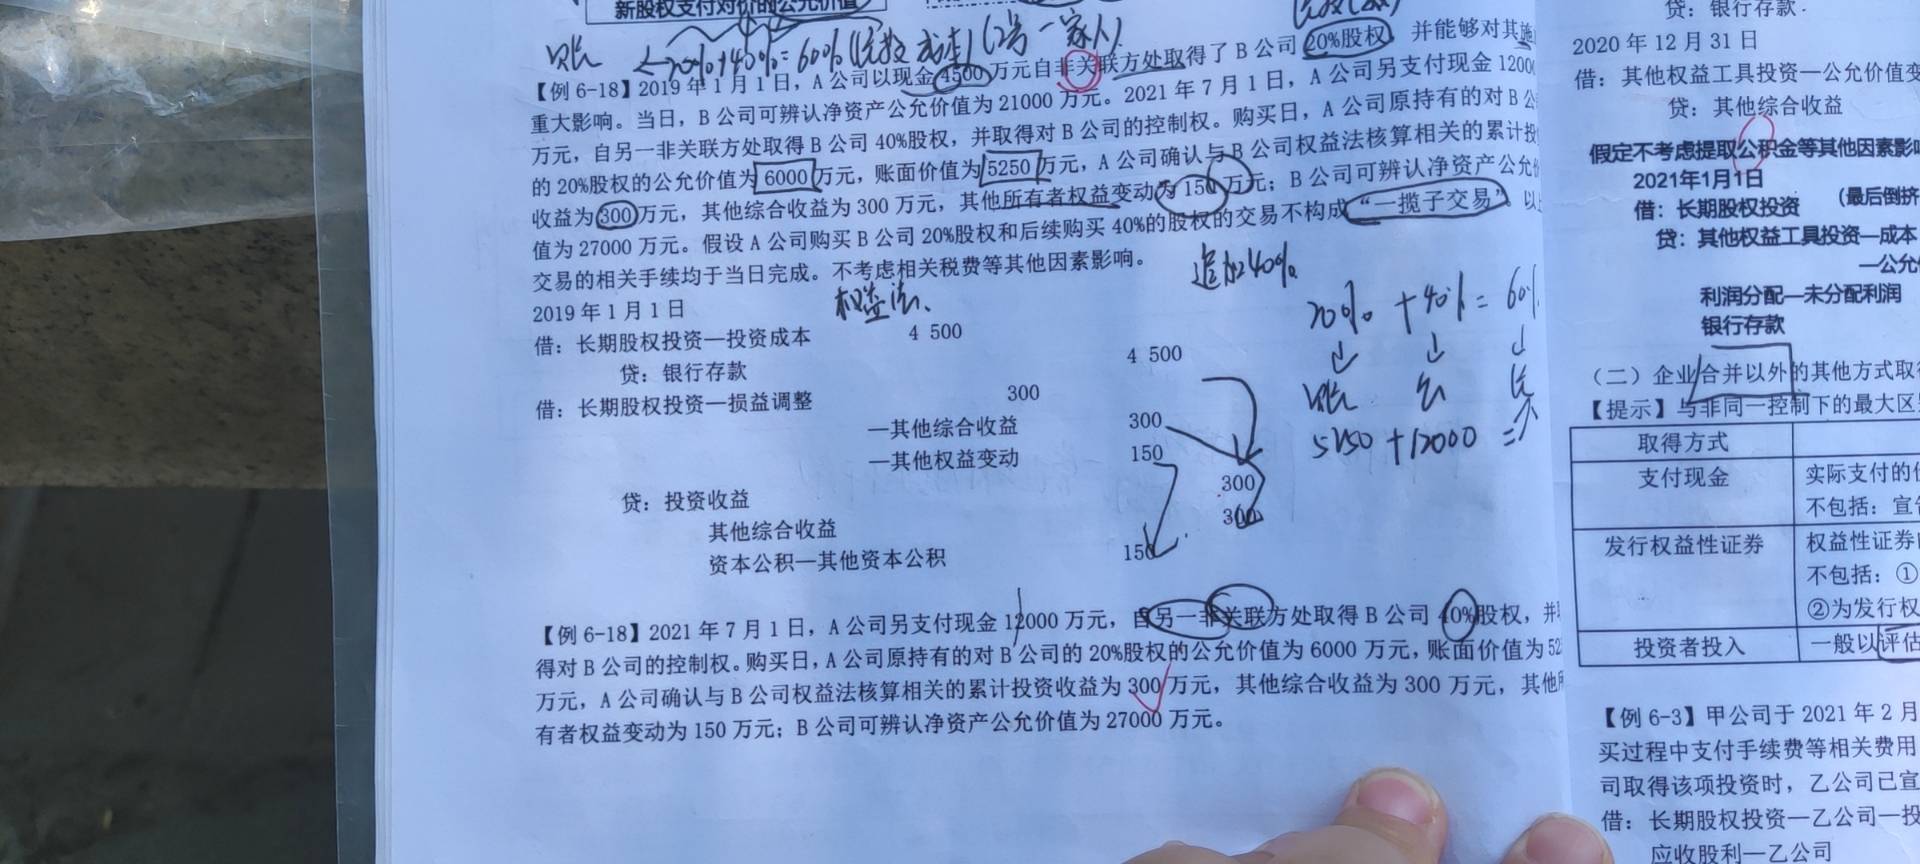 新股权支付对价的公允价值
←20%+40%=60%
【例 6-18】2019 年 1 月 1 日，A 公司以现金 4500 万元自非关联方处取得了 B 公司 20%股权，并能够对其施
重大影响。当日，B 公司可辨认净资产公允价值为 21000 万元。2021 年 7 月 1 日，A 公司另支付现金 12000
万元，自另一非关联方处取得 B 公司 40%股权，并取得对 B 公司的控制权。购买日，A 公司原持有的对 B 公
的 20%股权的公允价值为 6000 万元，账面价值为 5250 万元，A 公司确认与 B 公司权益法核算相关的累计投
收益为 300 万元，其他综合收益为 300 万元，其他所有者权益变动为 150 万元；B 公司可辨认净资产公允
值为 27000 万元。假设 A 公司购买 B 公司 20%股权和后续购买 40%的股权的交易不构成“一揽子交易”，以
交易的相关手续均于当日完成。不考虑相关税费等其他因素影响。
追加40%
2019 年 1 月 1 日
权益法、
借：长期股权投资—投资成本 4 500
贷：银行存款 4 500
借：长期股权投资—损益调整 300
—其他综合收益 300
—其他权益变动 150
贷：投资收益 300
其他综合收益 300
资本公积—其他资本公积 150
20% + 40% = 60%
↓ ↓ ↓
账 公
5250 + 12000 =
【例 6-18】2021 年 7 月 1 日，A 公司另支付现金 12000 万元，自另一非关联方处取得 B 公司 40%股权，并
得对 B 公司的控制权。购买日，A 公司原持有的对 B 公司的 20%股权的公允价值为 6000 万元，账面价值为 52
万元，A 公司确认与 B 公司权益法核算相关的累计投资收益为 300 万元，其他综合收益为 300 万元，其他
有者权益变动为 150 万元；B 公司可辨认净资产公允价值为 27000 万元。
贷：银行存款
2020 年 12 月 31 日
借：其他权益工具投资—公允价值变
贷：其他综合收益
假定不考虑提取公积金等其他因素影
2021年1月1日
借：长期股权投资 （最后倒挤
贷：其他权益工具投资—成本
—公允
利润分配—未分配利润
银行存款
（二）企业合并以外的其他方式取
【提示】与非同一控制下的最大区
取得方式
支付现金 实际支付的
不包括：宣
发行权益性证券 权益性证券
不包括：①
②为发行权
投资者投入 一般以评估
【例 6-3】甲公司于 2021 年 2 月
买过程中支付手续费等相关费用
司取得该项投资时，乙公司已宣
借：长期股权投资—乙公司—投
应收股利—乙公司